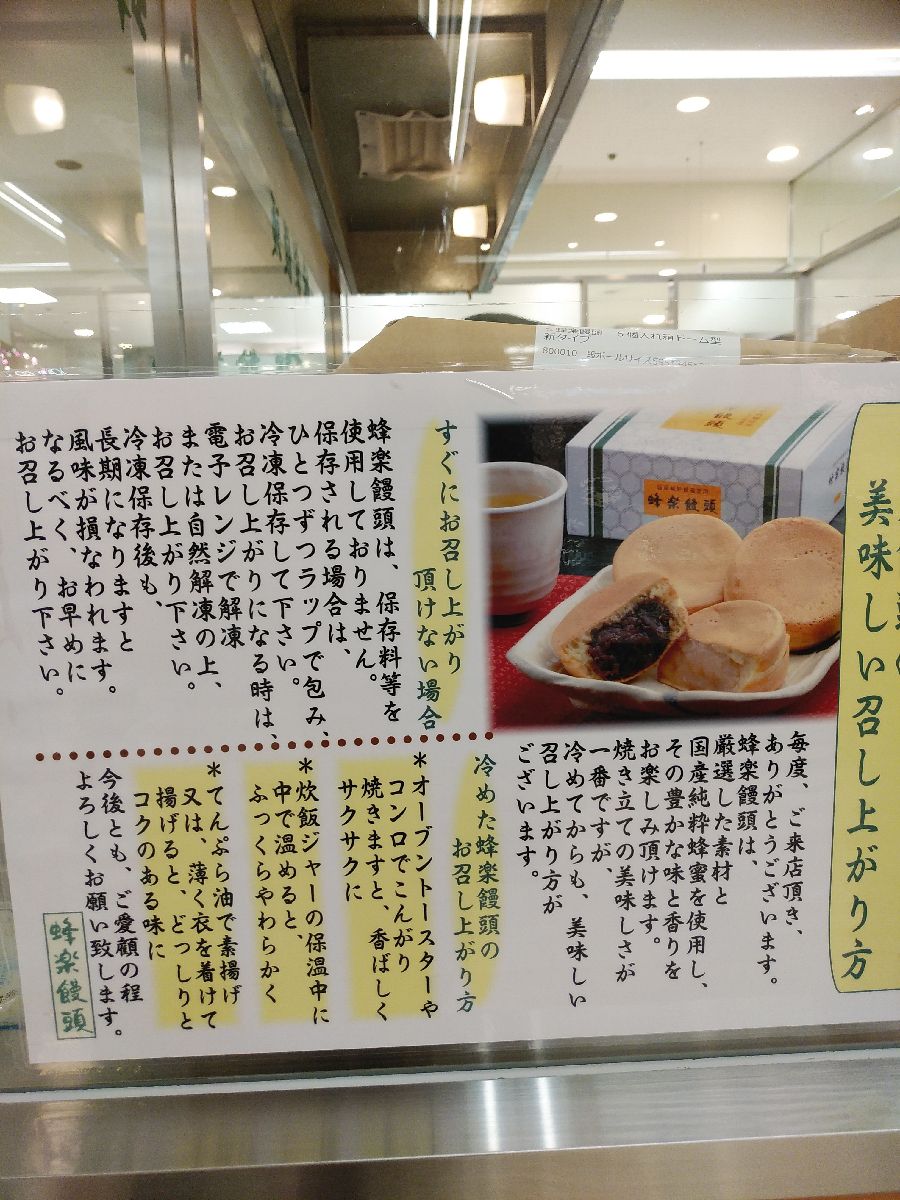 美味しい召し上がり方
毎度、ご来店頂き、
ありがとうございます。
蜂楽饅頭は、
厳選した素材と
国産純粋蜂蜜を使用し、
その豊かな味と香りを
お楽しみ頂けます。
焼き立ての美味しさが
一番ですが、
冷めてからも、美味しい
召し上がり方が
ございます。
すぐにお召し上がり
頂けない場合
蜂楽饅頭は、保存料等を
使用しておりません。
保存される場合は、
ひとつずつラップで包み、
冷凍保存して下さい。
お召し上がりになる時は、
電子レンジで解凍
または自然解凍の上、
お召し上がり下さい。
冷凍保存後も、
長期になりますと
風味が損なわれます。
なるべく、お早めに
お召し上がり下さい。
冷めた蜂楽饅頭の
お召し上がり方
*オーブントースターや
コンロでこんがり
焼きますと、香ばしく
サクサクに
*炊飯ジャーの保温中に
中で温めると、
ふっくらやわらかく
*てんぷら油で素揚げ
又は、薄く衣を着けて
揚げると、どっしりと
コクのある味に
今後とも、ご愛顧の程
よろしくお願い致します。
蜂楽饅頭
蜂楽饅頭
新タイプ
800010